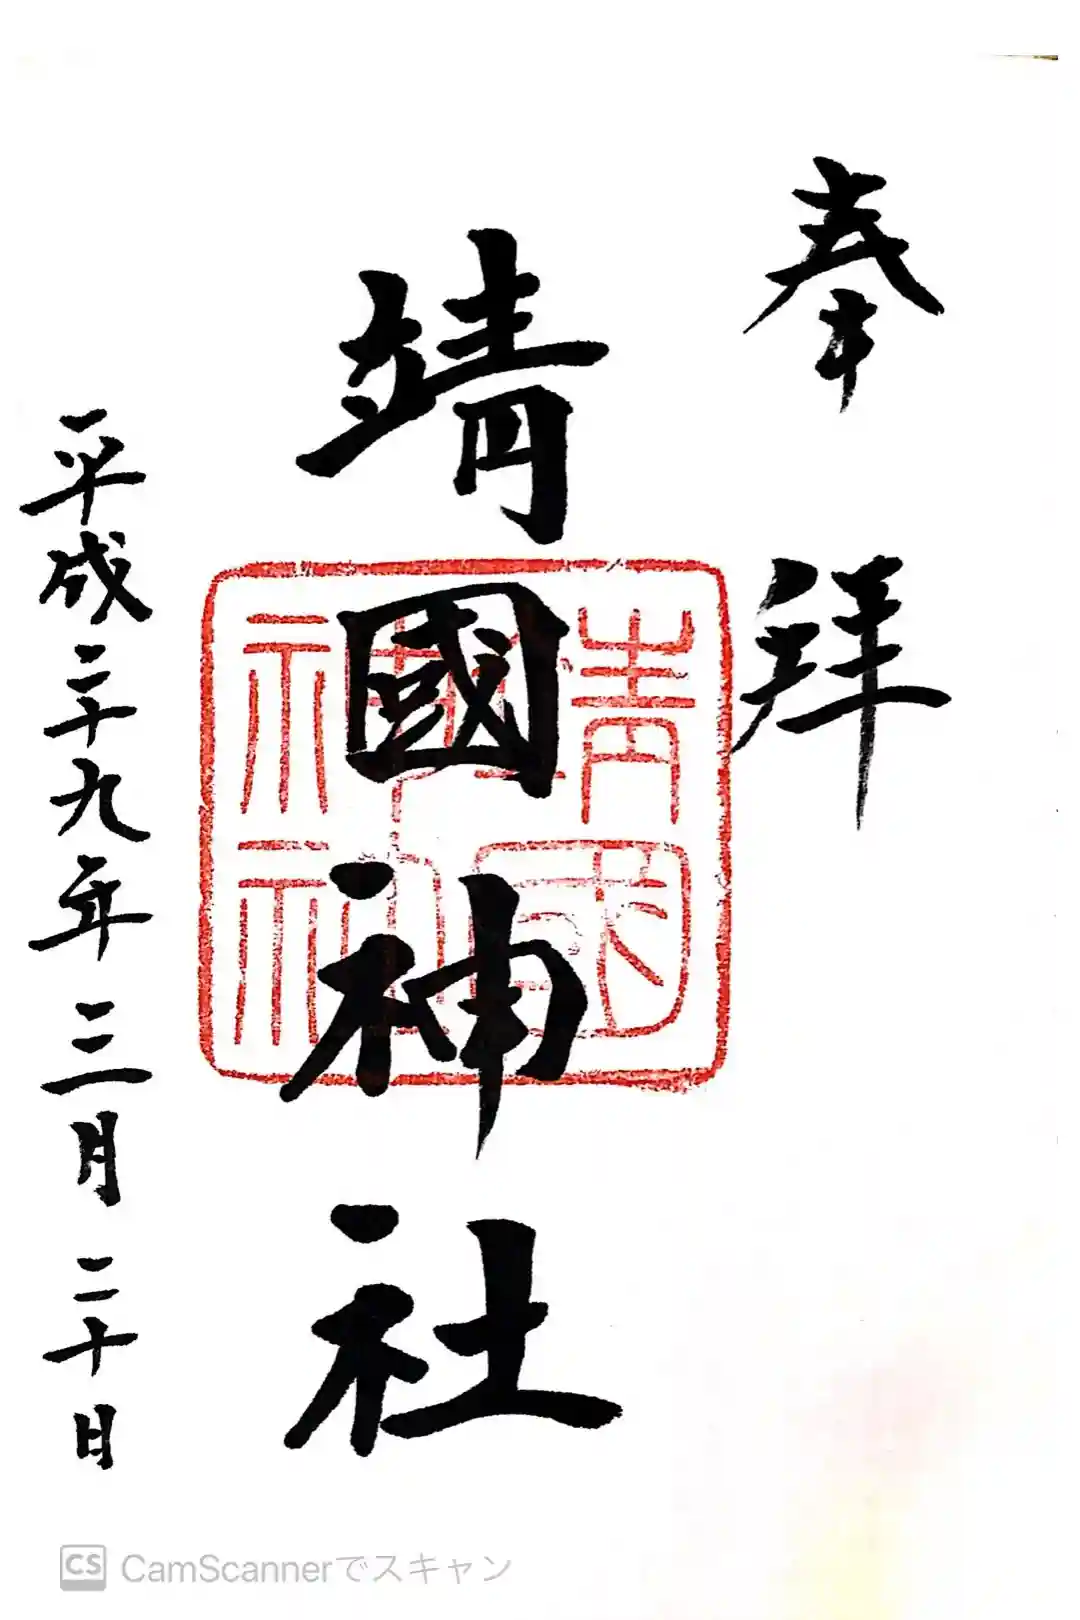 奉拜
靖國神社
靖國神社
平成二十九年三月二十日
CS CamScannerでスキャン